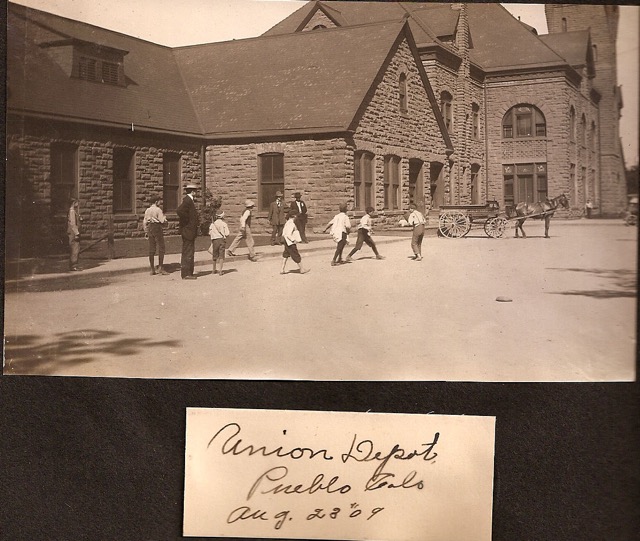 Union Depot,
Pueblo Colo
Aug. 23" 09